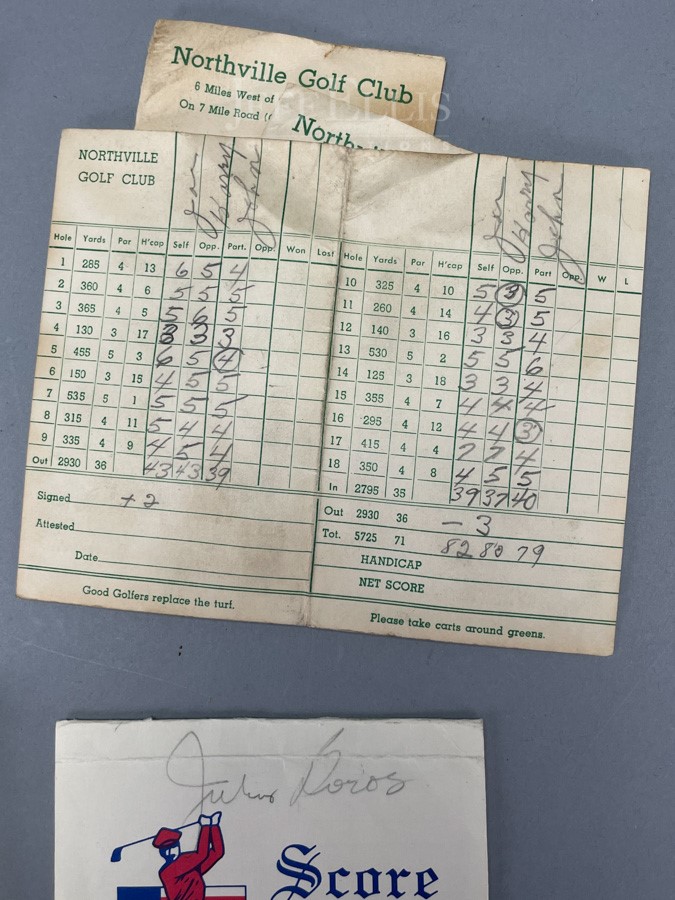 Northville Golf Club
6 Miles West of
On 7 Mile Road
North
NORTHVILLE
GOLF CLUB
Jon Harry John
Jon Harry John
Hole Yards Par H'cap Self Opp. Part. Opp. Won Lost
1 285 4 13 6 5 4
2 360 4 6 5 5 5
3 365 4 5 5 6 5
4 130 3 17 3 3 3
5 455 5 3 6 5 4
6 150 3 15 4 5 5
7 535 5 1 5 5 5
8 315 4 11 5 4 4
9 335 4 9 4 5 4
Out 2930 36 43 43 39
Signed +2
Attested
Date
Good Golfers replace the turf.
Hole Yards Par H'cap Self Opp. Part Opp. W L
10 325 4 10 5 3 5
11 260 4 14 4 3 5
12 140 3 16 3 3 4
13 530 5 2 5 5 6
14 125 3 18 3 3 4
15 355 4 7 4 4 4
16 295 4 12 4 4 3
17 415 4 4 7 7 4
18 350 4 8 4 5 5
In 2795 35 39 37 40
Out 2930 36 -3
Tot. 5725 71 82 80 79
HANDICAP
NET SCORE
Please take carts around greens.
Julius Boros
Score